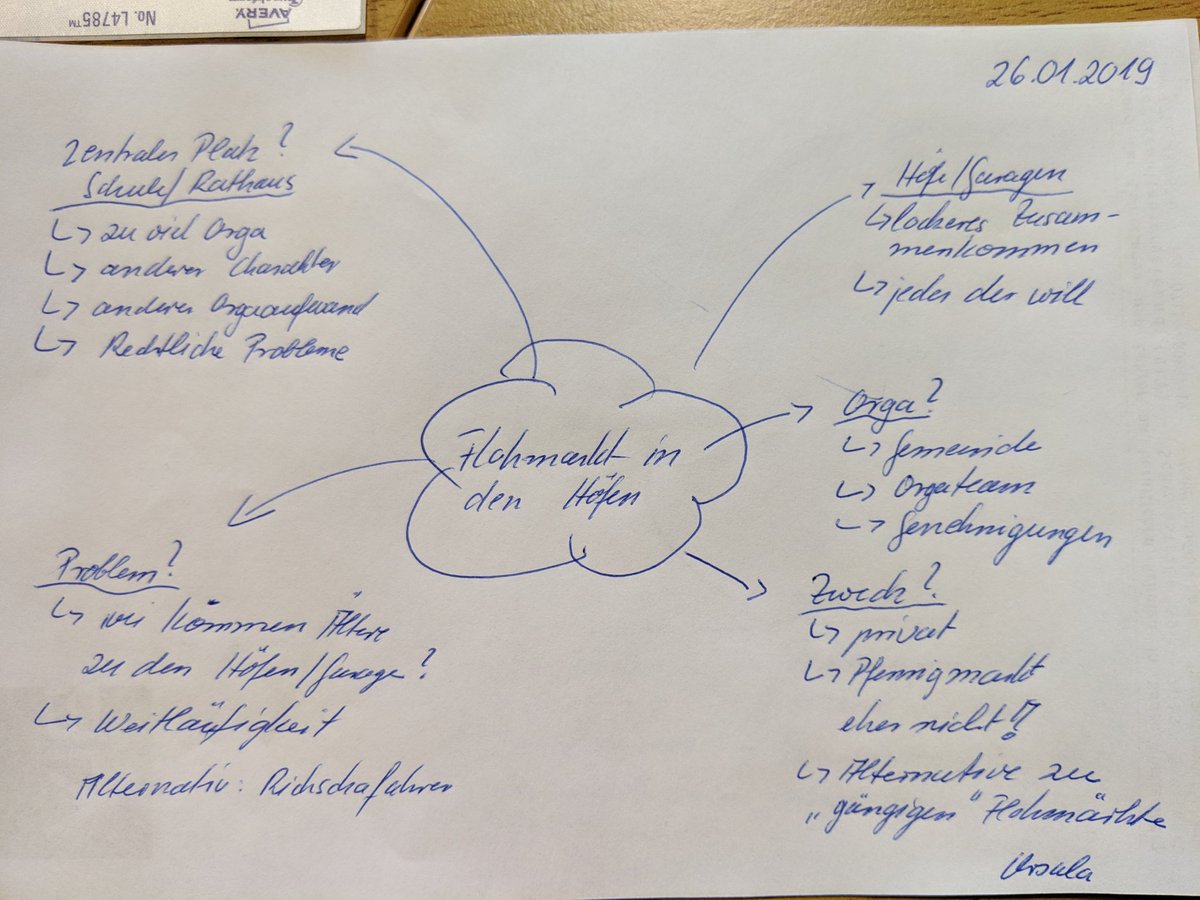 No. L4785™
AVERY
26.01.2019
Zentraler Platz?
Schule/Rathaus
↳ zu viel Orga
↳ anderer Charakter
↳ anderer Orgaaufwand
↳ Rechtliche Probleme
Höfe/Garagen
↳ lockeres Zusam-
menkommen
↳ jeder der will
Flohmarkt in
den Höfen
Orga?
↳ Gemeinde
↳ Orgateam
↳ Genehmigungen
Problem?
↳ wie kommen Ältere
zu den Höfen/Garage?
↳ Weitläufigkeit
Alternativ: Rickschafahrer
Zweck?
↳ privat
↳ Pfennigmarkt
eher nicht!?
↳ Alternative zu
„gängigen" Flohmärkte
Ursula